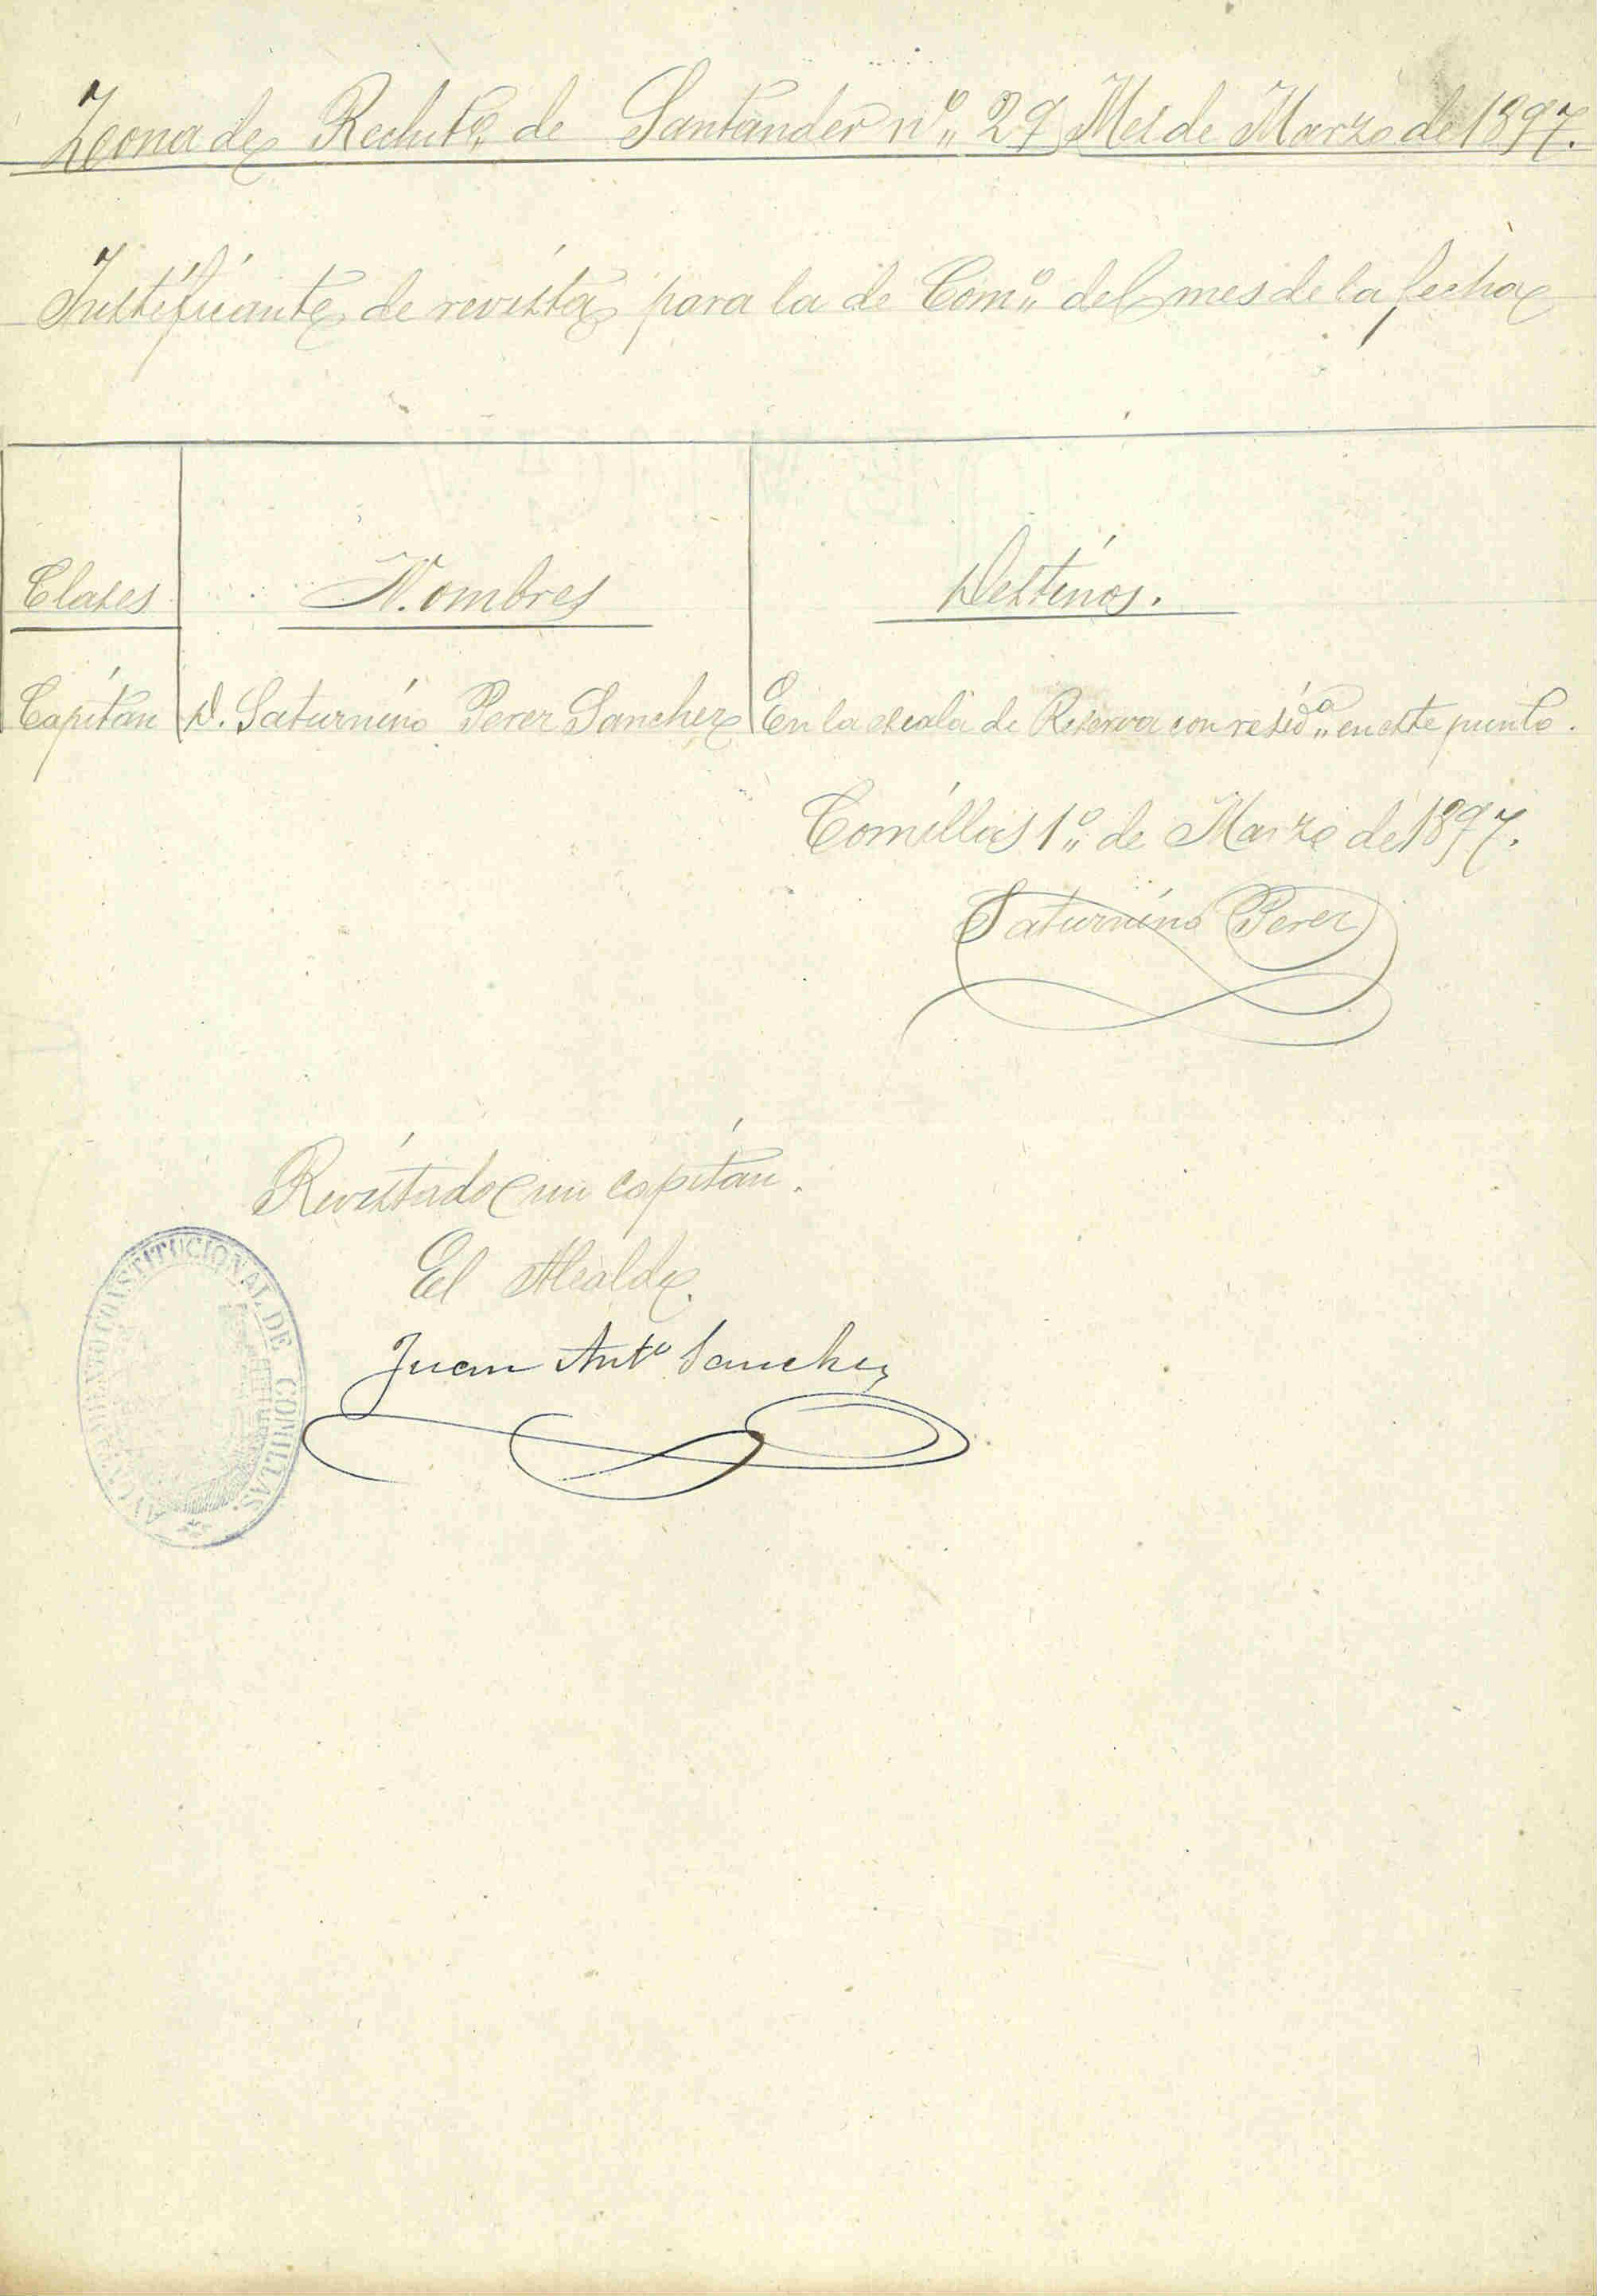 Zona de Reclutº de Santander nº 29 Mes de Marzo de 1897.
Justificante de revista para la de Comº del mes de la fecha
Clases Nombres Destinos.
Capitan D. Saturnino Perez Sanchez En la escala de Reserva con residª en este punto.
Comillas 1º de Marzo de 1897.
Saturnino Perez
Revistado un capitan.
El Alcalde.
Juan Antº Sanchez
AYUNTAMIENTO CONSTITUCIONAL DE COMILLAS.